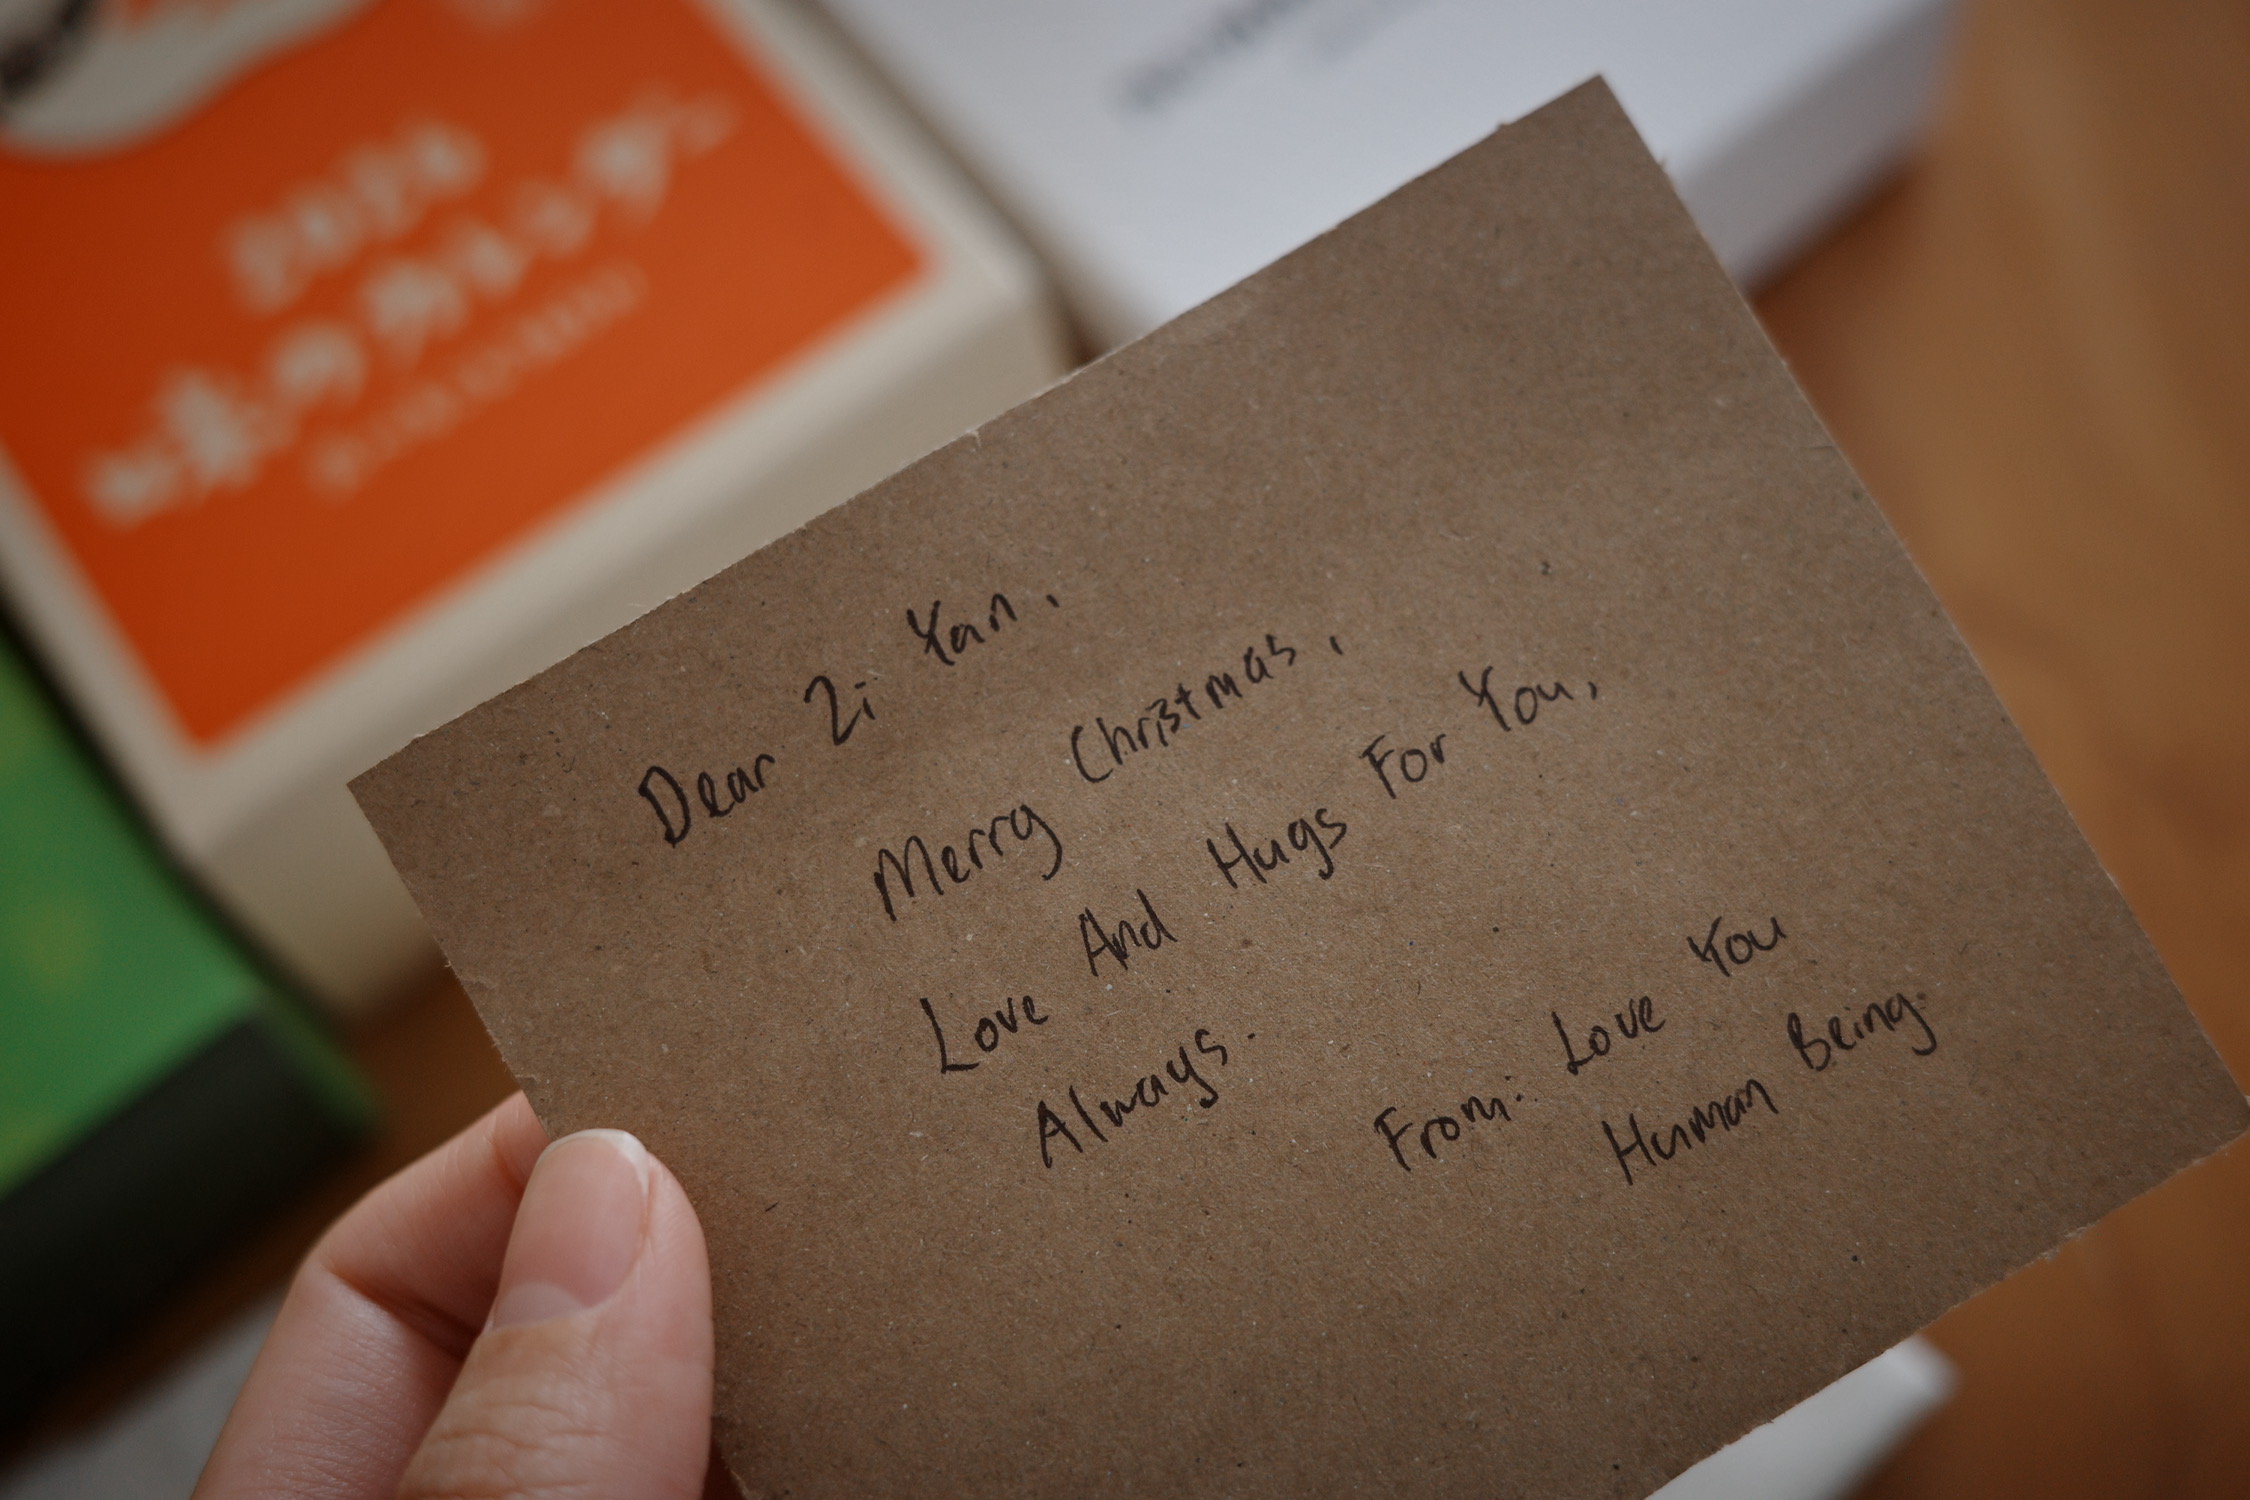 Dear Zi Yan,
Merry Christmas,
Love And Hugs For You,
Always.
From: Love You
Human Being.